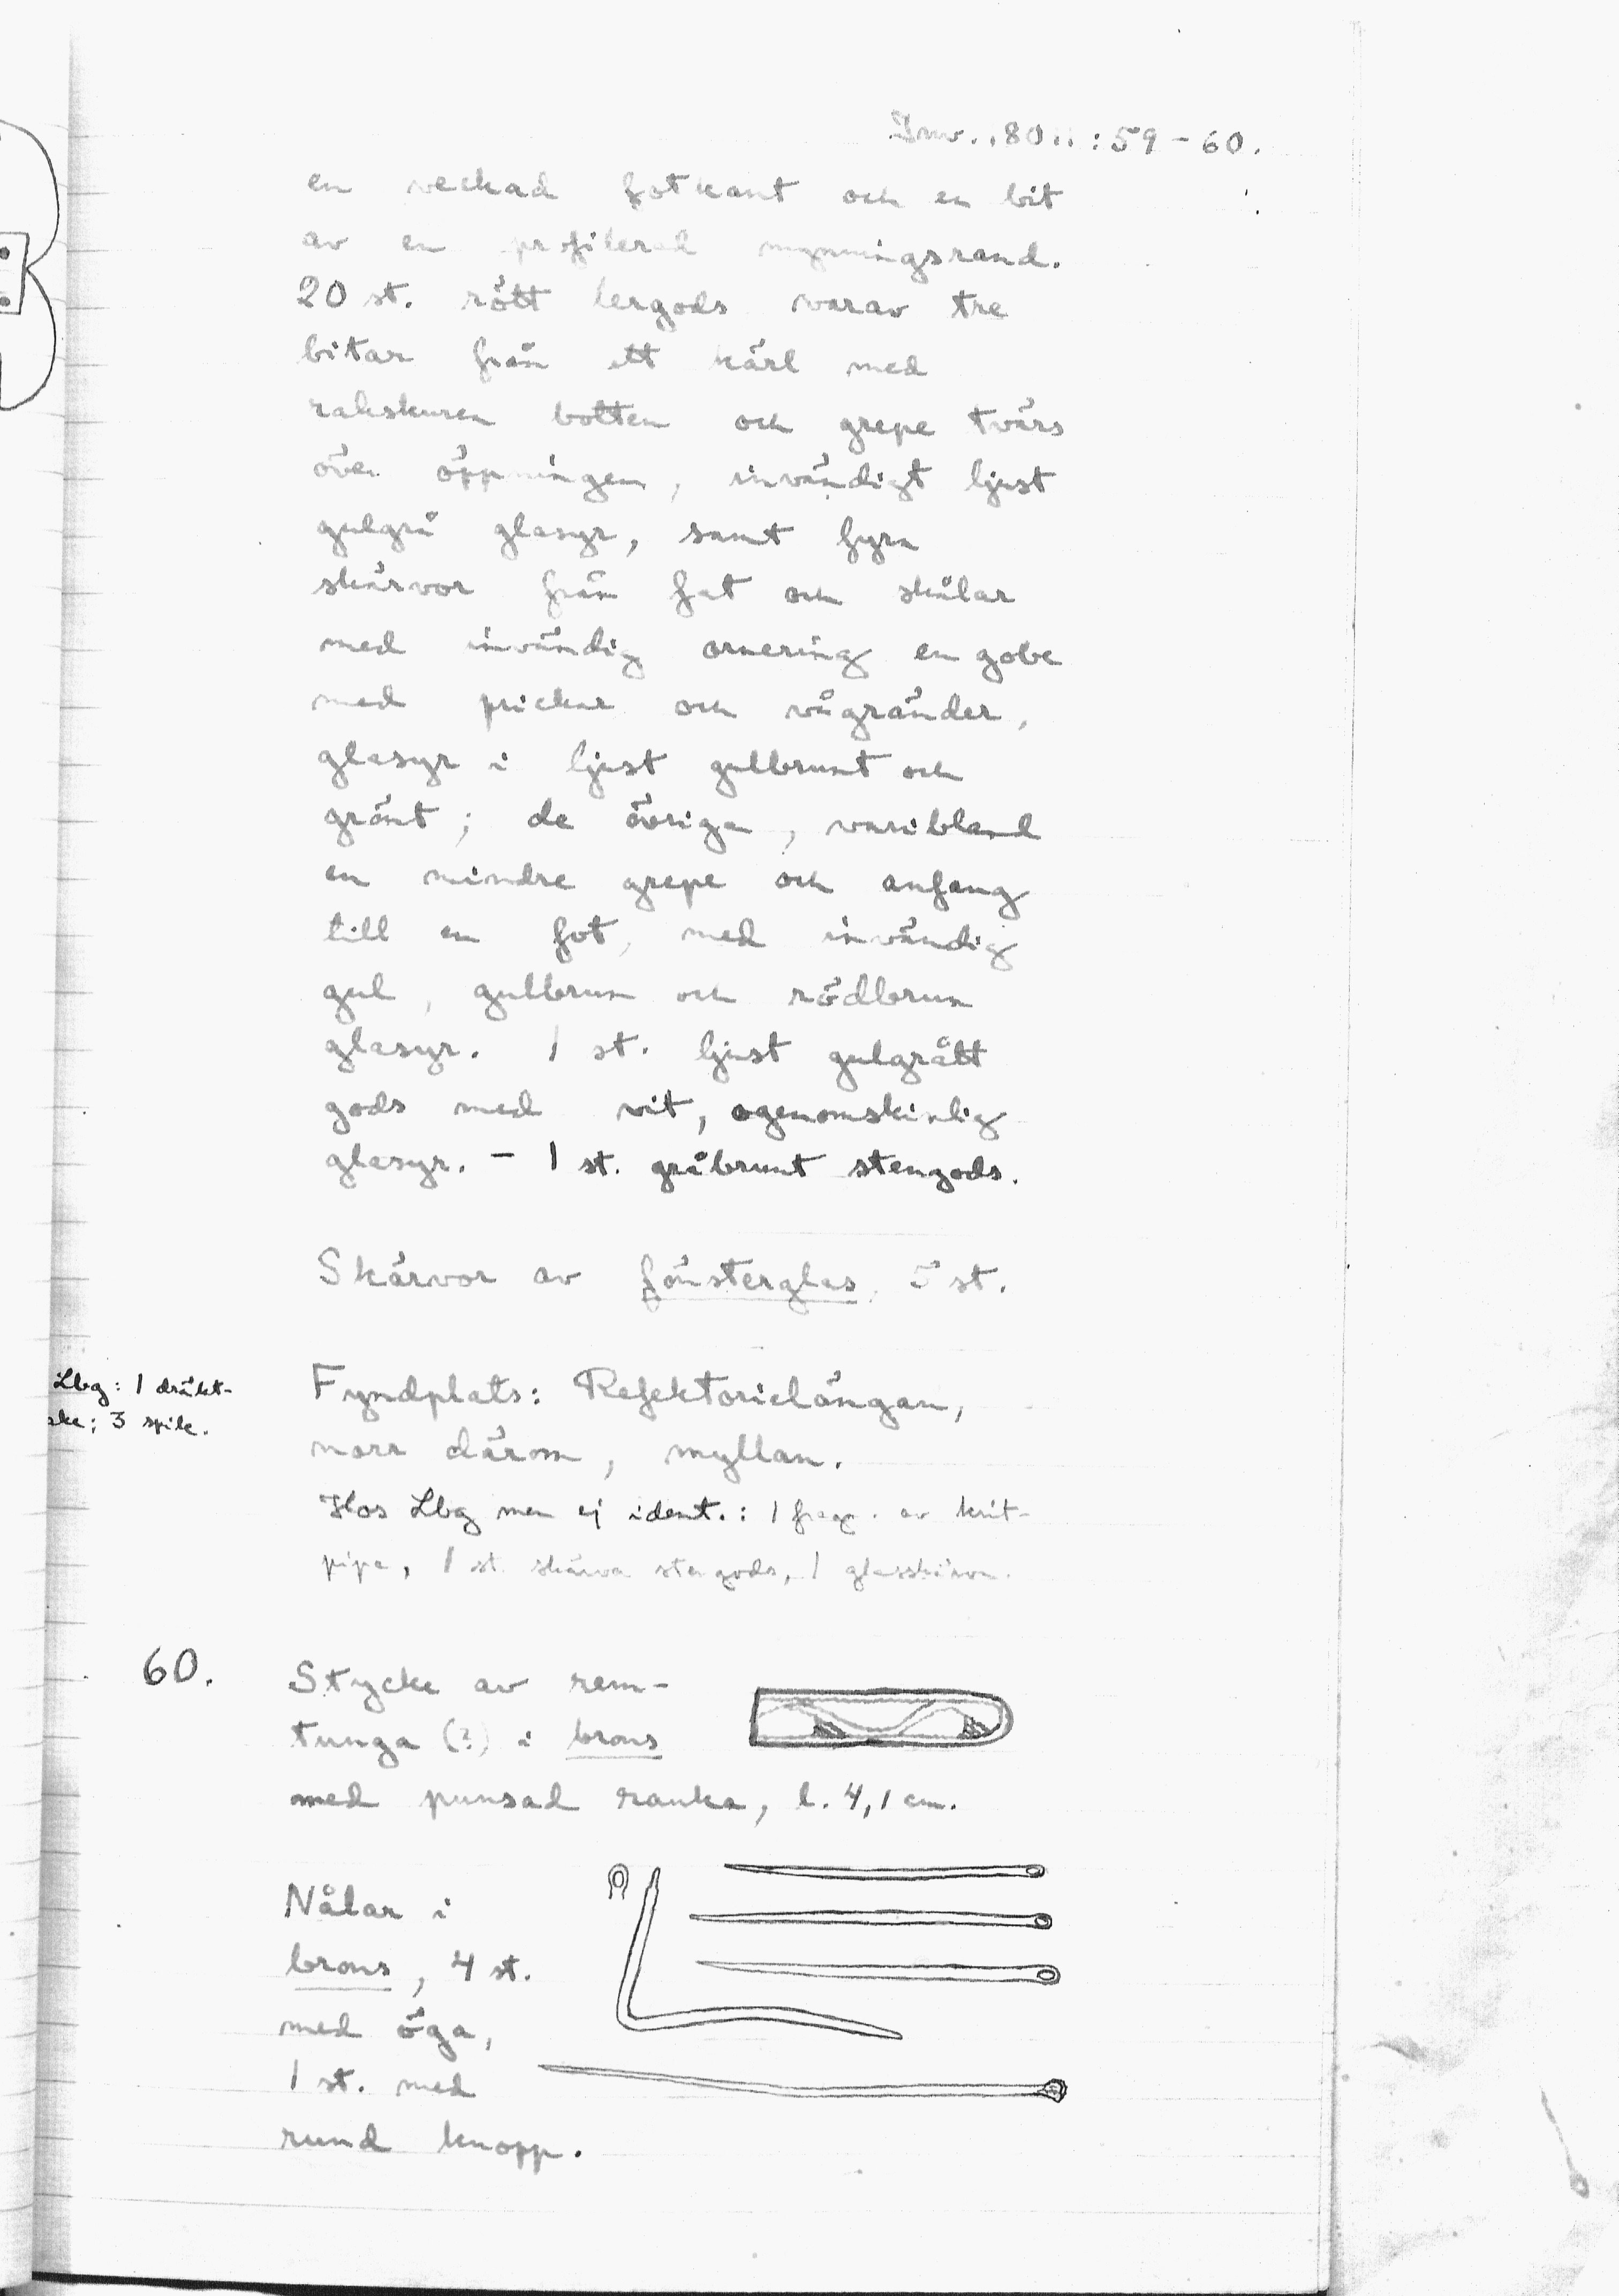 Inv. 80 : 59 - 60.
en veckad fotkant och en bit
av en profilerad mynningsrand.
20 st. rött lergods varav tre
bitar från ett kärl med
rakskuren botten och grepe tvärs
över öppningen, invändigt ljust
gulgrå glasyr, samt fyra
skärvor från fat och skålar
med invändig ornering en gobe
med prickar och vågränder,
glasyr i ljust gulbrunt och
grönt; de övriga, varibland
en mindre grepe och anfang
till en fot, med invändig
gul, gulbrun och rödbrun
glasyr. 1 st. ljust gulgrått
gods med vit, ogenomskinlig
glasyr. - 1 st. gråbrunt stengods.
Skärvor av fönsterglas, 5 st.
Lbg: 1 dräkt-
ske; 3 spik.
Fyndplats: Refektorielängan,
norr därom, myllan.
Hos Lbg men ej ident.: 1 frag. av krit-
pipa, 1 st. skärva stengods, 1 glasskärva.
60. Stycke av rem-
tunga (?) i brons
med punsad ranka, l. 4,1 cm.
Nålar i
brons, 4 st.
med öga,
1 st. med
rund knopp.